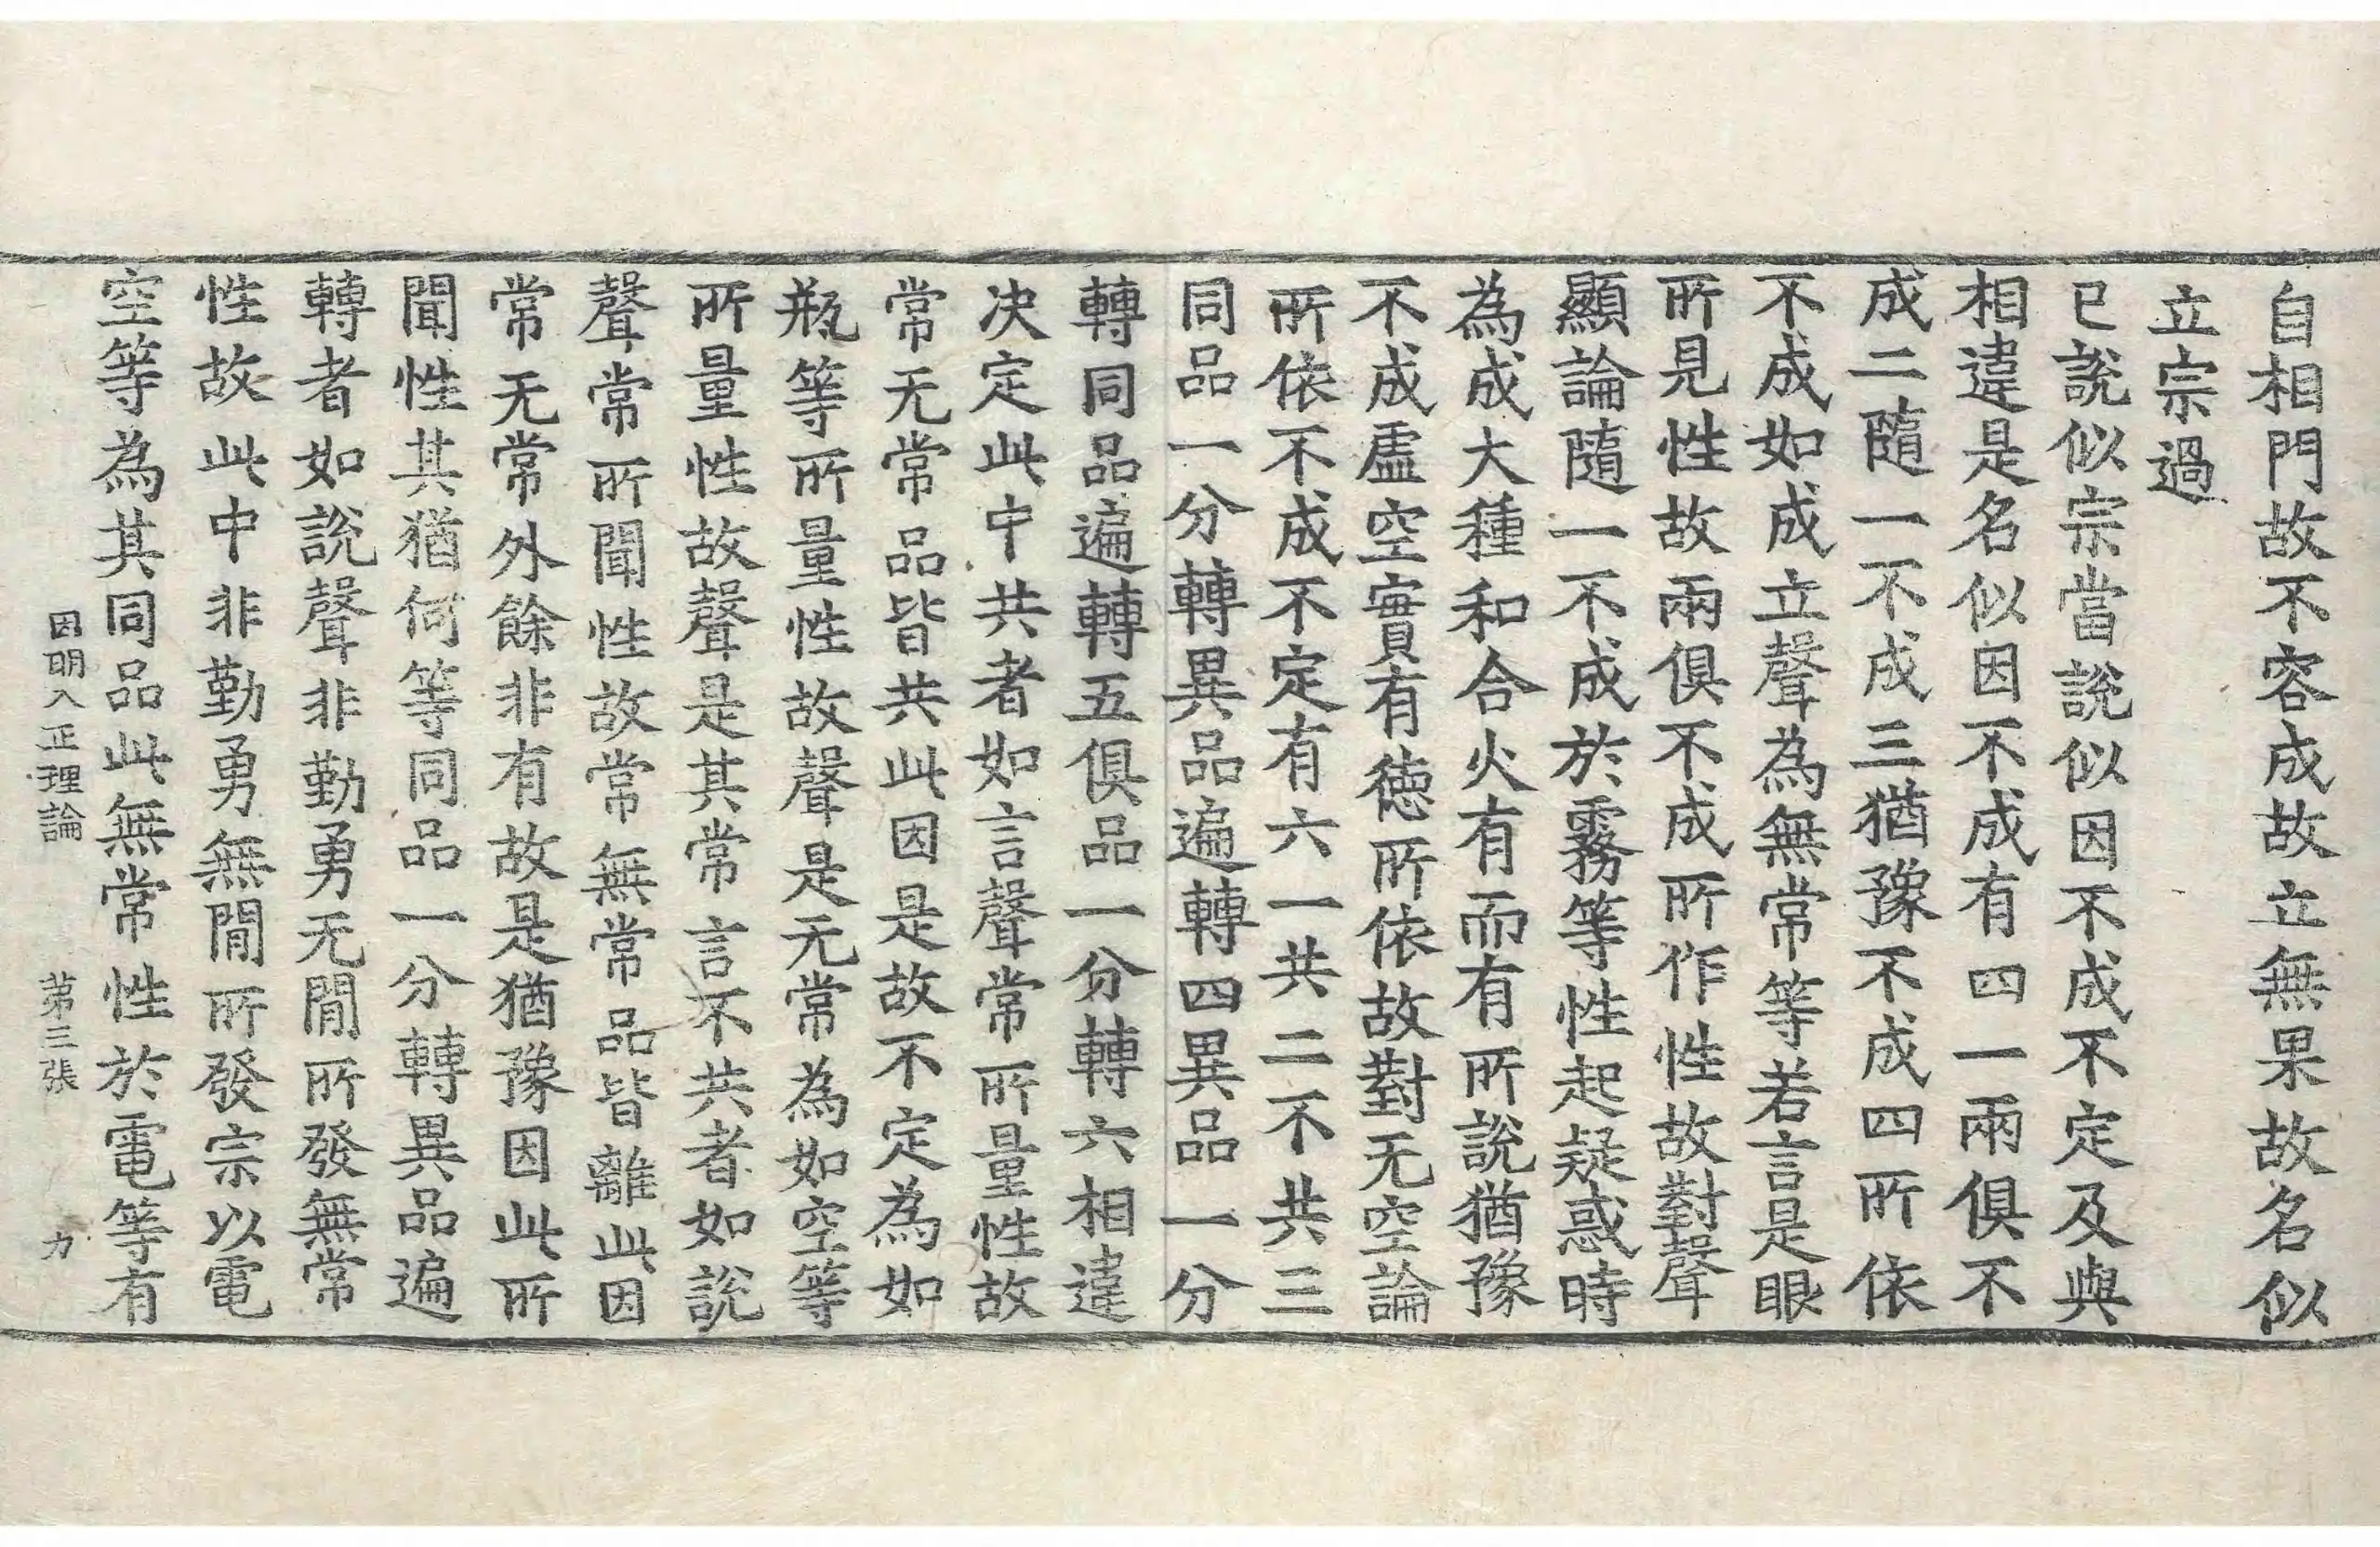 自相門故不容成故立無果故名似
立宗過
已說似宗當說似因不成不定及與
相違是名似因不成有四一兩俱不
成二隨一不成三猶豫不成四所依
不成如成立聲為無常等若言是眼
所見性故兩俱不成所作性故對聲
顯論隨一不成於霧等性起疑惑時
為成大種和合火有而有所說猶豫
不成虛空實有德所依故對无空論
所依不成不定有六一共二不共三
同品一分轉異品遍轉四異品一分
轉同品遍轉五俱品一分轉六相違
決定此中共者如言聲常所量性故
常无常品皆共此因是故不定為如
瓶等所量性故聲是无常為如空等
所量性故聲是其常言不共者如說
聲常所聞性故常無常品皆離此因
常无常外餘非有故是猶豫因此所
聞性其猶何等同品一分轉異品遍
轉者如說聲非勤勇无間所發無常
性故此中非勤勇無間所發宗以電
空等為其同品此無常性於電等有
因明入正理論 苐三張 力